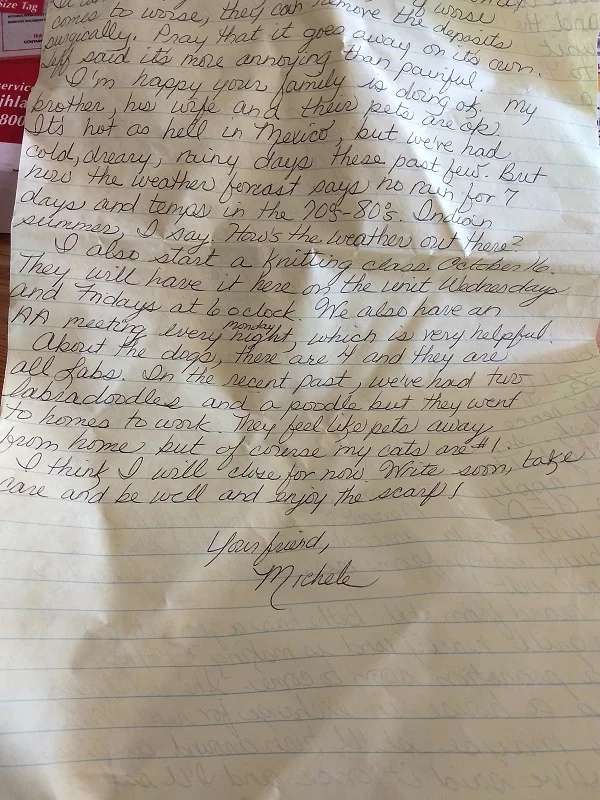 Size Tag
servic
jhla
800
worse
comes to worse, they can remove the deposits
surgically. Pray that it goes away on its own.
Jeff said it's more annoying than painful.
I'm happy your family is doing ok. My
brother, his wife and their pets are ok.
It's hot as hell in Mexico, but we've had
cold, dreary, rainy days these past few. But
now the weather forecast says no rain for 7
days and temps in the 70s-80s. Indian
summer, I say. How's the weather out there?
I also start a knitting class October 16.
They will have it here on the unit Wednesdays
and Fridays at 6 o'clock. We also have an
AA meeting every monday night, which is very helpful.
About the dogs, there are 4 and they are
all Labs. In the recent past, we've had two
labradoodles and a poodle but they went
to homes to work. They feel like pets away
from home, but of course my cats are #1.
I think I will close for now. Write soon, take
care and be well and enjoy the scarf!
Your friend,
Michele